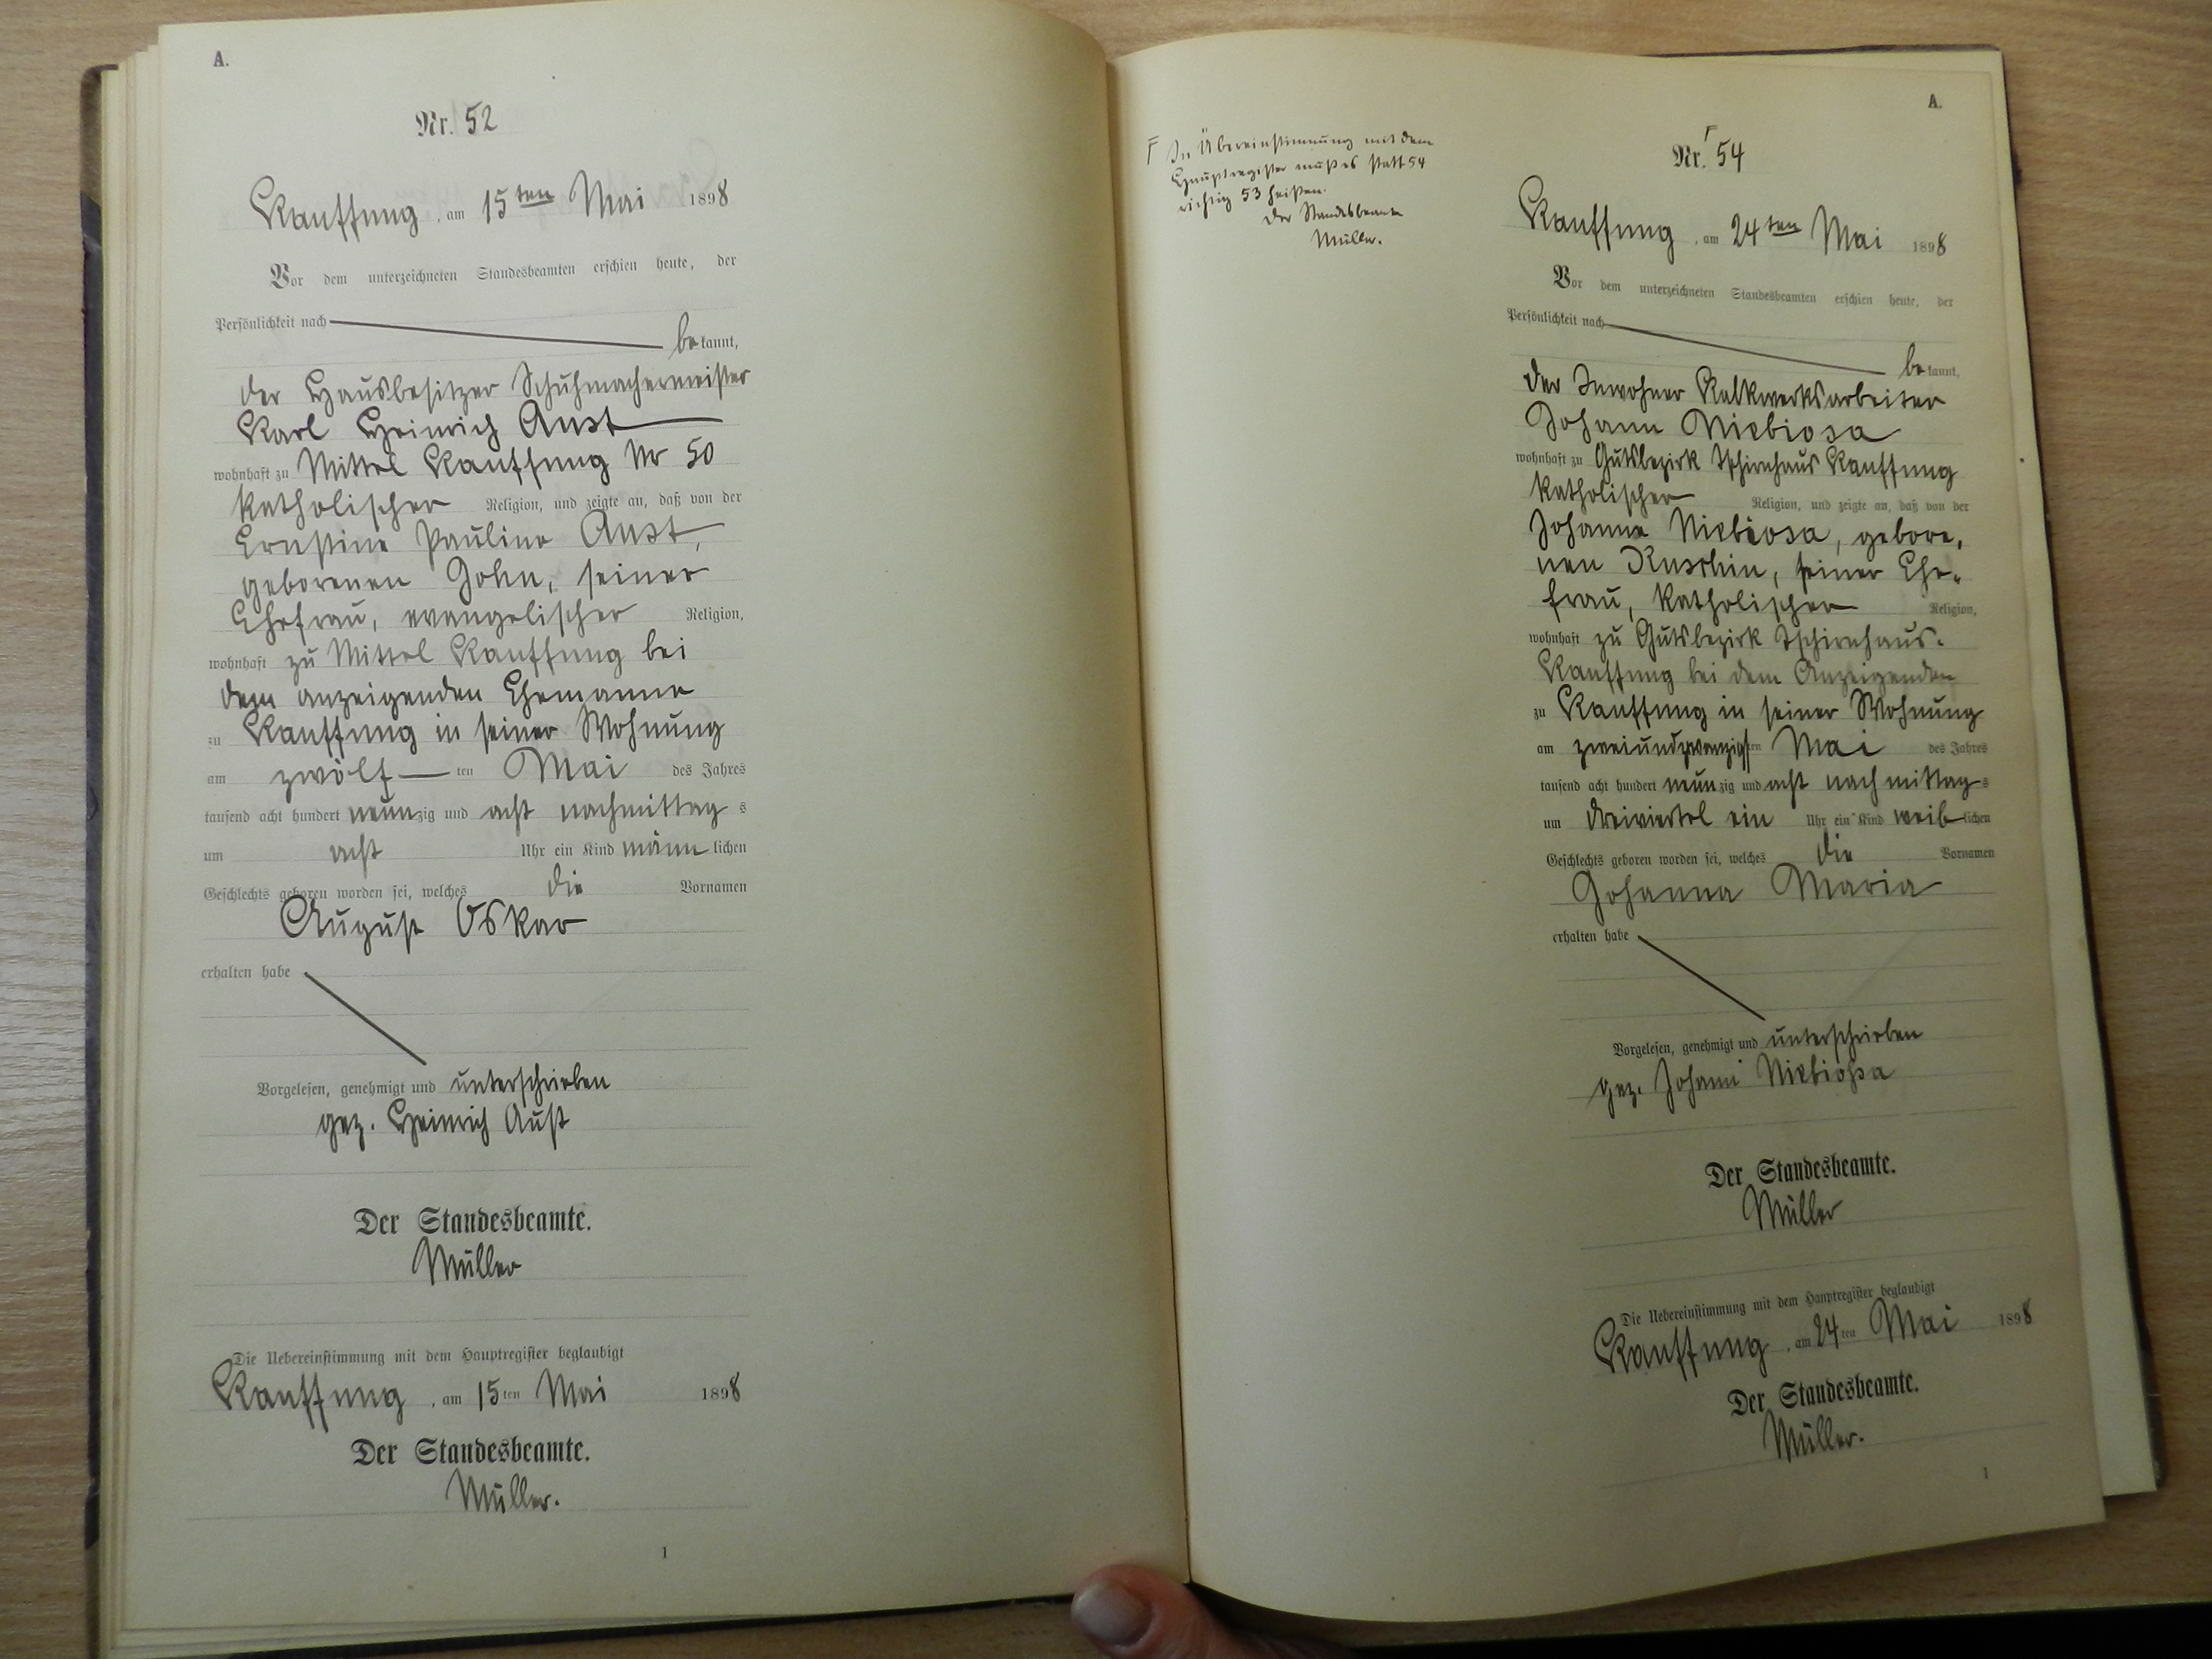 A.
Nr. 52
Kauffung, am 15ten Mai 1898
Vor dem unterzeichneten Standesbeamten erschien heute, der
Persönlichkeit nach
bekannt,
der Hausbesitzer Schuhmachermeister
Karl Heinrich Aust
wohnhaft zu Mittel Kauffung Nr 50
katholischer Religion, und zeigte an, daß von der
Ernstine Pauline Aust,
geborenen John, seiner
Ehefrau, evangelischer Religion,
wohnhaft zu Mittel Kauffung bei
dem anzeigenden Ehemanne
zu Kauffung in seiner Wohnung
am zwölf ten Mai des Jahres
tausend acht hundert neunzig und acht nachmittags
um acht Uhr ein Kind männlichen
Geschlechts geboren worden sei, welches die Vornamen
August Oskar
erhalten habe
Vorgelesen, genehmigt und unterschrieben
gez. Heinrich Aust
Der Standesbeamte.
Müller
Die Uebereinstimmung mit dem Hauptregister beglaubigt
Kauffung, am 15ten Mai 1898
Der Standesbeamte.
Müller.
1
A.
Nr. 54
F In Übereinstimmung mit dem
Hauptregister muß es statt 54
richtig 53 heißen.
Der Standesbeamte
Müller.
Kauffung, am 24ten Mai 1898
Vor dem unterzeichneten Standesbeamten erschien heute, der
Persönlichkeit nach
bekannt,
der Inwohner Kalkwerksarbeiter
Johann Niebiosa
wohnhaft zu Gutsbezirk Tschirnhaus Kauffung
katholischer Religion, und zeigte an, daß von der
Johanna Niebiosa, gebore,
nen seiner Ehe-
frau, katholischer Religion,
wohnhaft zu Gutsbezirk Tschirnhaus-
Kauffung bei dem Anzeigenden
zu Kauffung in seiner Wohnung
am zweiundzwanzigsten Mai des Jahres
tausend acht hundert neunzig und acht nachmittags
um dreiviertel ein Uhr ein Kind weiblichen
Geschlechts geboren worden sei, welches die Vornamen
Johanna Maria
erhalten habe
Vorgelesen, genehmigt und unterschrieben
gez. Johann Niebiossa
Der Standesbeamte.
Müller
Die Uebereinstimmung mit dem Hauptregister beglaubigt
Kauffung, am 24ten Mai 1898
Der Standesbeamte.
Müller.
1